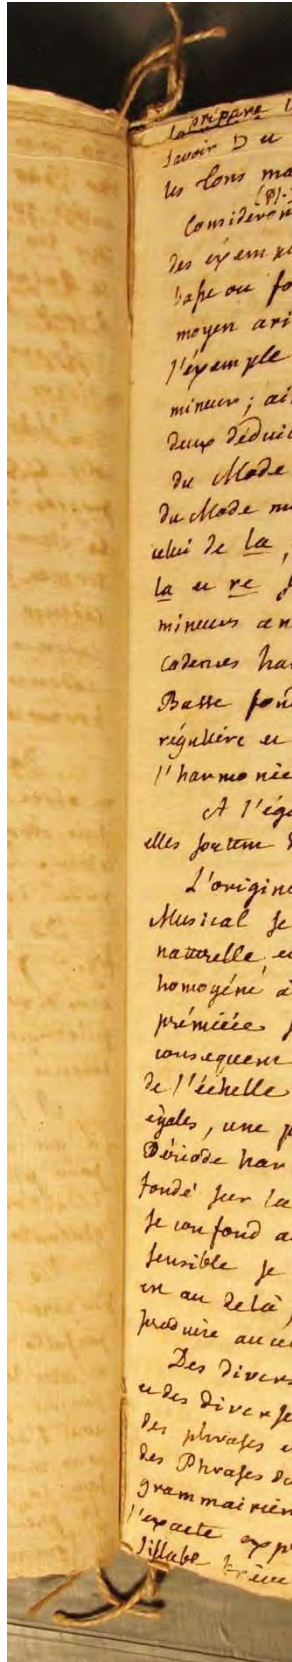 la prépare l
savoir D et
les tons ma
(Pl.
Considéron
des exemple
basse ou fo
moyen ari
l'exemple
mineurs; ai
deux déduit
du Mode
du Mode mi
celui de la,
la et re
mineurs an
cadences har
Basse fon
régulière et
l'harmonie
A l'éga
elles sortent
L'origine
Musical se
naturelle et
homogéne à
prémiére
consequent
de l'échelle
égales, une p
Période har
fondé sur la
se confond a
sensible se
en au delà,
produire aucu
Des divers
et des diverse
des phrases e
des Phrases du
grammairien
l'exacte exp
sillabe brève